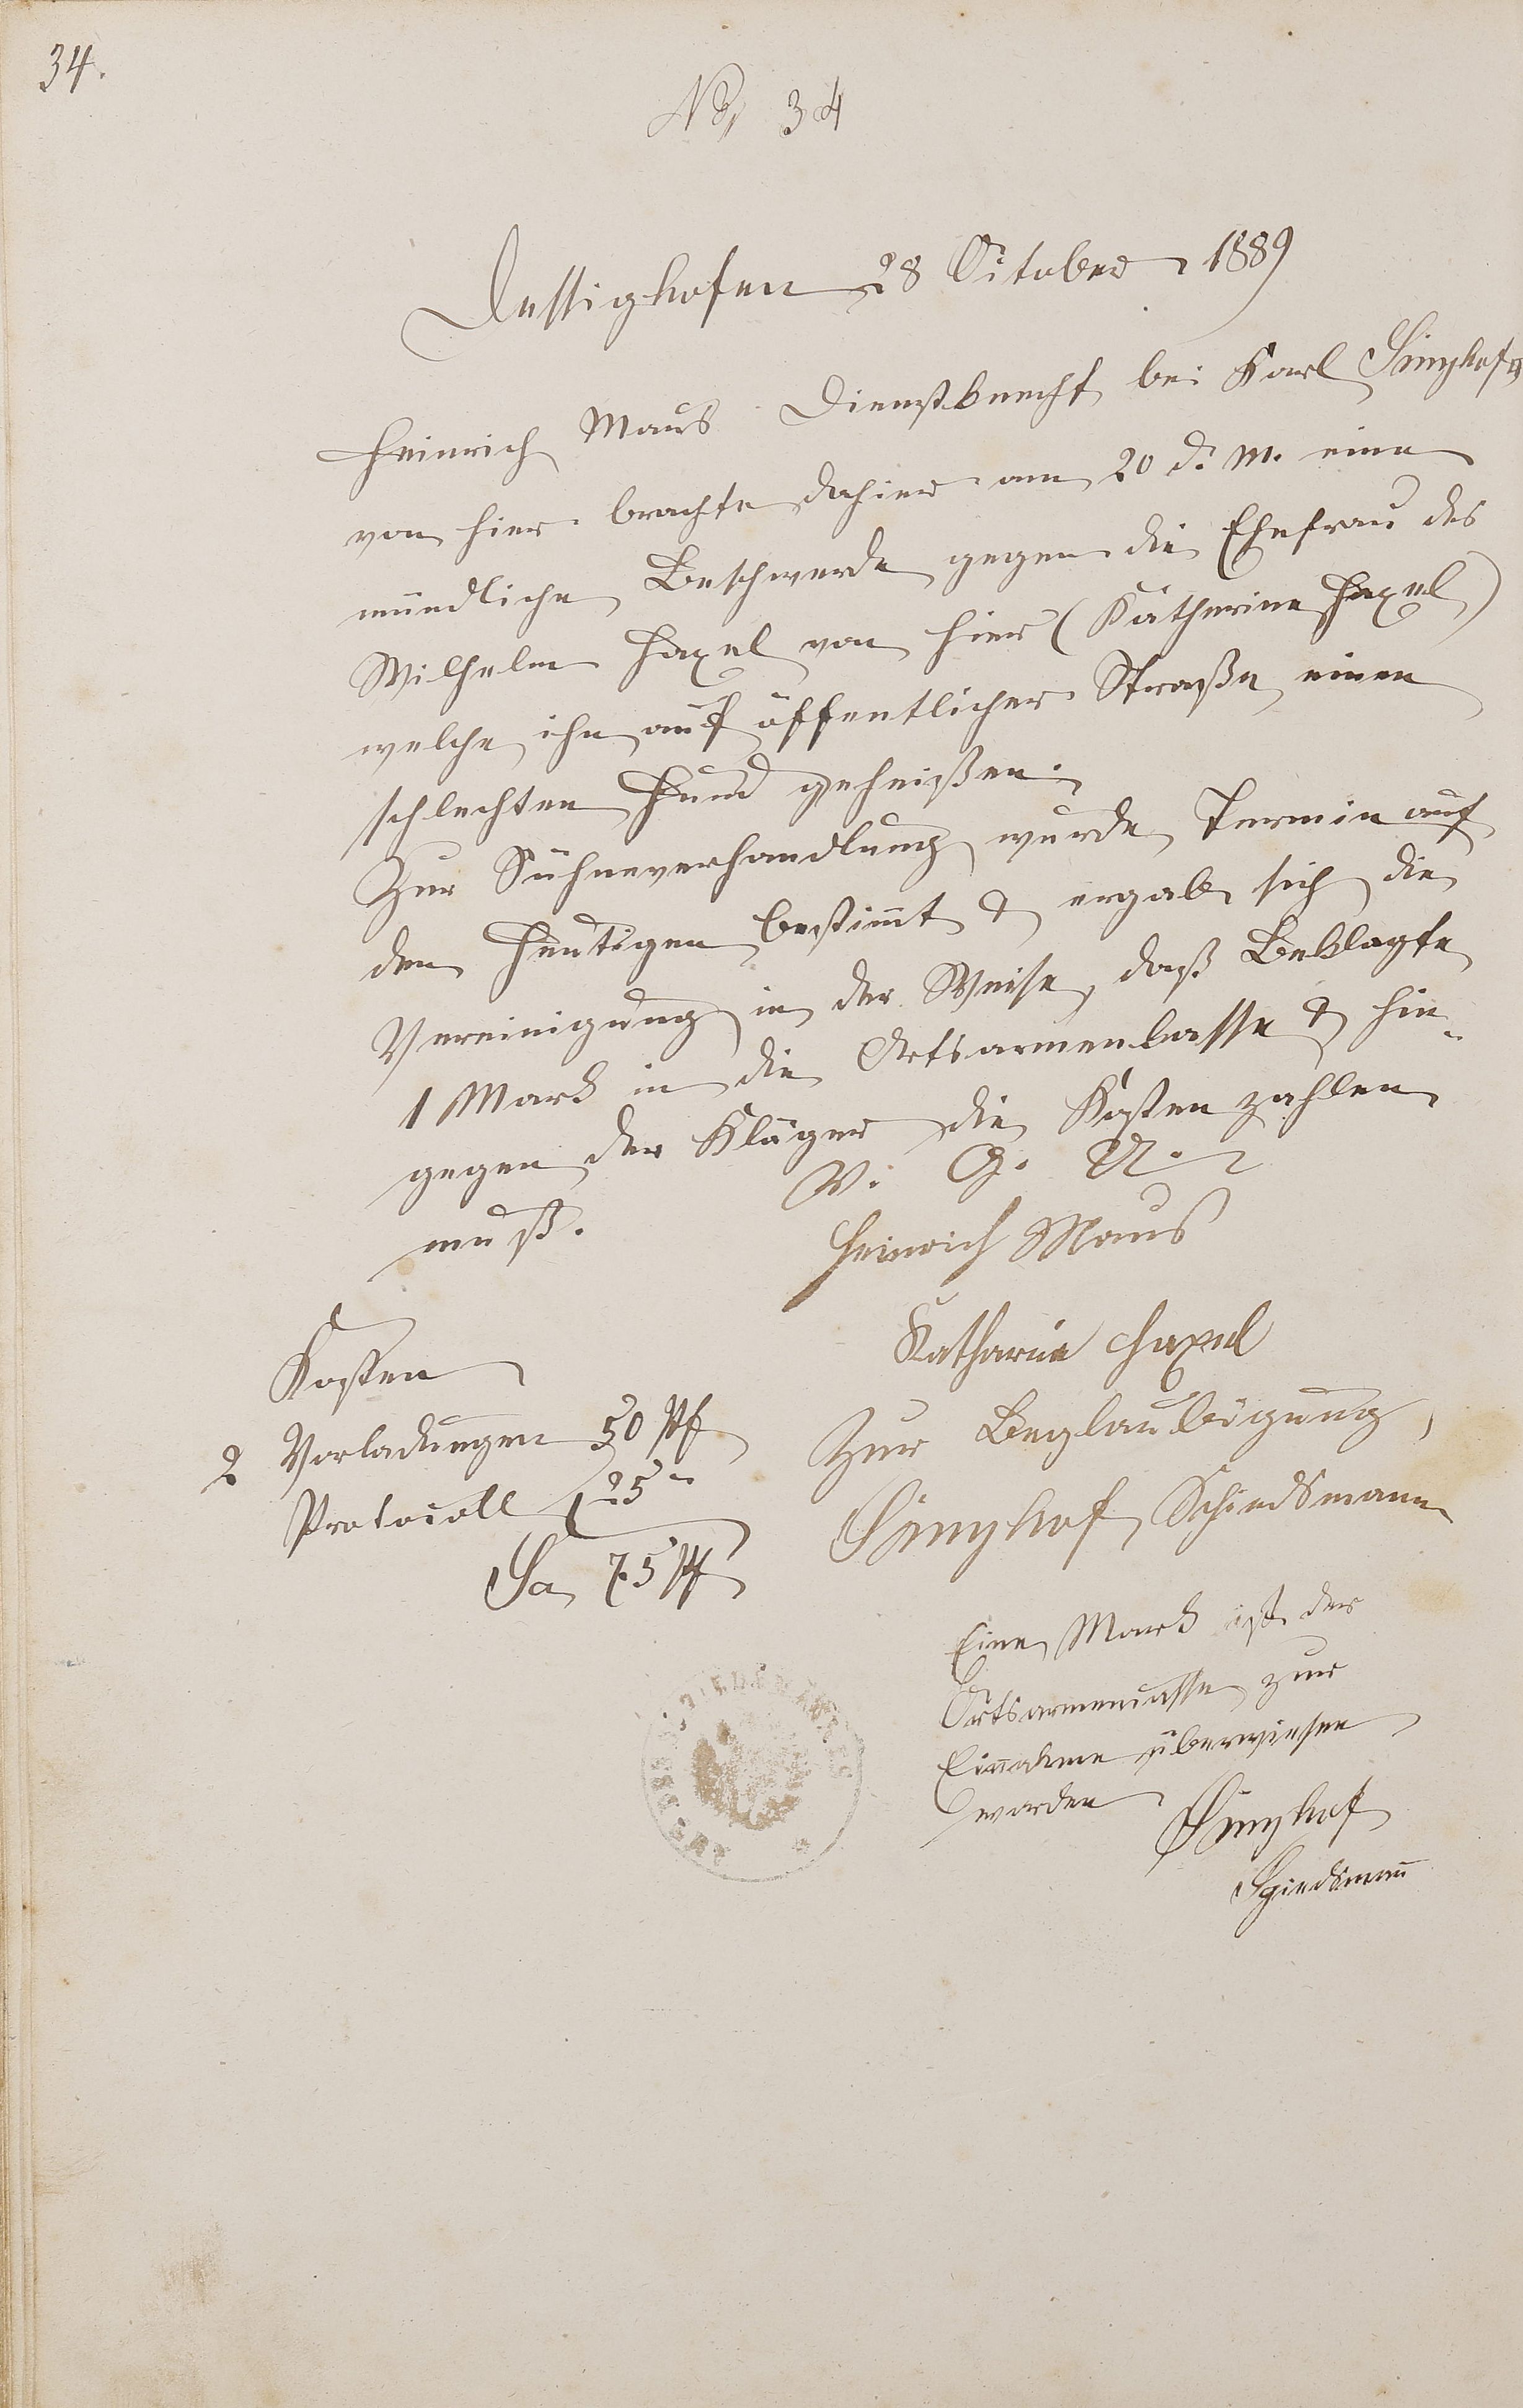 34.
No 34
Dessighofen 28 October 1889
Heinrich Maus Dienstknecht bei Karl Singhof
von hier brachte dahier am 20 d. M. eine
mündliche Beschwerde gegen die Ehefrau des
Wilhelm Haxel von hier (Katharine Haxel)
welche ihn auf öffentlicher Straße einen
schlechten Hund geheißen.
Zur Sühneverhandlung wurde Termin auf
den Heutigen bestimt & ergab sich die
Vereinigung in der Weise, daß Beklagte
1 Mark in die Ortsarmenkasse & hin-
gegen der Kläger die Kosten zahlen
muß.
V. G. U.
Heinrich Maus
Katharine Haxel
Kosten
2 Vorladungen 50 Pf
Protocoll 25 "
Sa 75 Pf
Zur Beglaubigung
Singhof Schiedsmann
Eine Mark ist der
Ortsarmencasse zur
Einnahme überwiesen
worden
Singhof
Schiedsmann